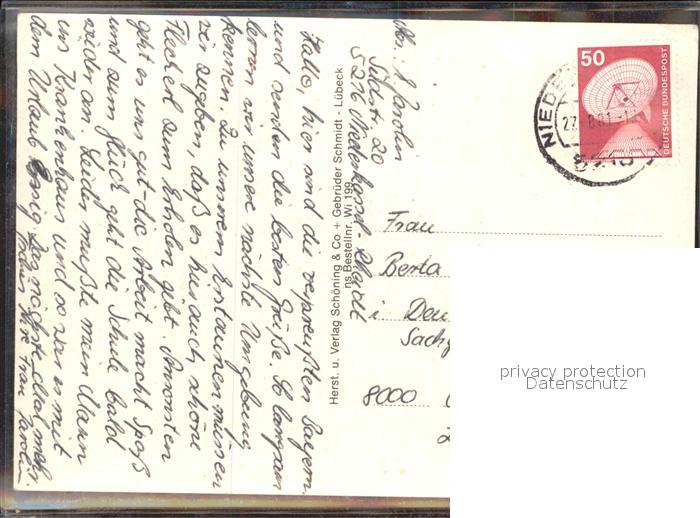 Abs.: J. Jarolin
Feldstr. 20
5216 Niederkassel-Rheidt
Hallo, hier sind die verpreußten Bayern
und senden die besten Grüße. So langsam
lernen wir unsere nächste Umgebung
kennen. Zu unserem Erstaunen müssen
wir zugeben, daß es hier auch schöne
Flecken zum Erholen gibt. Ansonsten
geht es uns gut - die Arbeit macht Spaß
und zum Glück geht die Schule bald
wieder an. Leider mußte mein Mann
ins Krankenhaus und so war es mit
dem Urlaub Essig. Das nächste Mal mehr.
Ihre Frau Jarolin
Herst. u. Verlag Schöning & Co + Gebrüder Schmidt - Lübeck
ns Bestellnr. Wi 199
50
DEUTSCHE BUNDESPOST
NIEDE
Frau
Berta
i
8000
privacy protection
Datenschutz